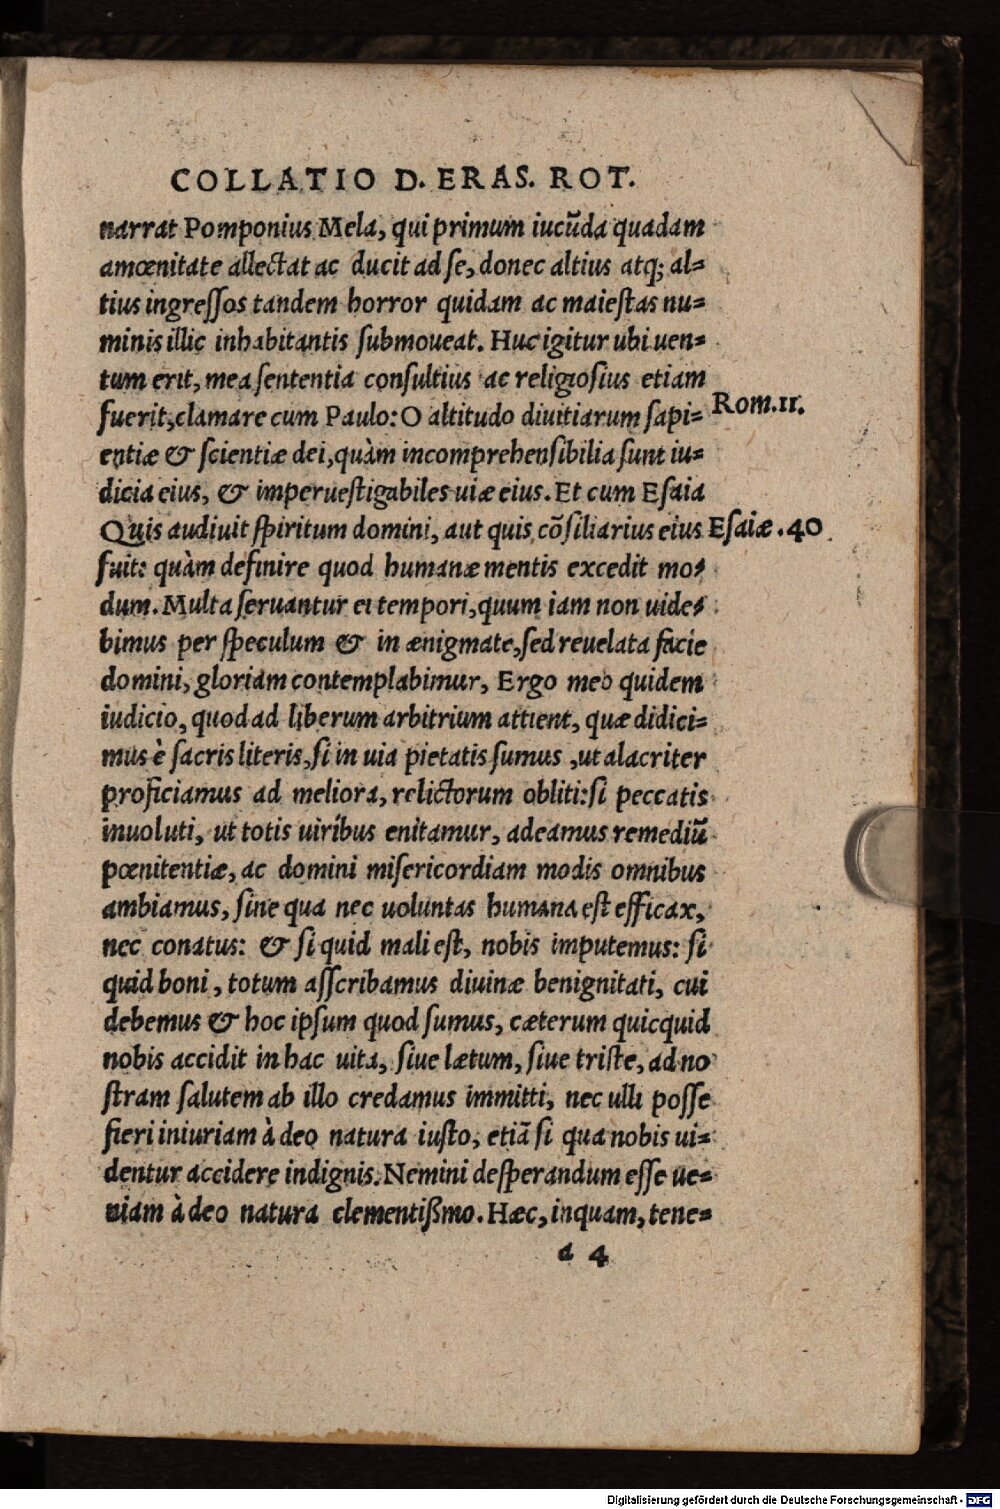 COLLATIO D. ERAS. ROT.
narrat Pomponius Mela, qui primum iucũda quadam
amœnitate allectat ac ducit ad se, donec altius atq; al=
tius ingressos tandem horror quidam ac maiestas nu=
minis illic inhabitantis submoueat. Huc igitur ubi uen=
tum erit, mea sententia consultius ac religiosius etiam
fuerit, clamare cum Paulo: O altitudo diuitiarum sapi=
Rom.11.
entiæ & scientiæ dei, quàm incomprehensibilia sunt iu=
dicia eius, & imperuestigabiles uiæ eius. Et cum Esaia
Quis audiuit spiritum domini, aut quis cõsiliarius eius
Esaiæ.40
fuit: quàm definire quod humanæ mentis excedit mo=
dum. Multa seruantur ei tempori, quum iam non uide=
bimus per speculum & in ænigmate, sed reuelata facie
domini, gloriam contemplabimur, Ergo meo quidem
iudicio, quod ad liberum arbitrium attient, quæ didici=
mus è sacris literis, si in uia pietatis sumus, ut alacriter
proficiamus ad meliora, relictorum obliti: si peccatis
inuoluti, ut totis uiribus enitamur, adeamus remediũ
pœnitentiæ, ac domini misericordiam modis omnibus
ambiamus, sine qua nec uoluntas humana est efficax,
nec conatus: & si quid mali est, nobis imputemus: si
quid boni, totum asscribamus diuinæ benignitati, cui
debemus & hoc ipsum quod sumus, cæterum quicquid
nobis accidit in hac uita, siue lætum, siue triste, ad no
stram salutem ab illo credamus immitti, nec ulli posse
fieri iniuriam à deo natura iusto, etiã si qua nobis ui=
dentur accidere indignis. Nemini desperandum esse ue=
niam à deo natura clementißmo. Hæc, inquam, tene=
a 4
Digitalisierung gefördert durch die Deutsche Forschungsgemeinschaft - DFG